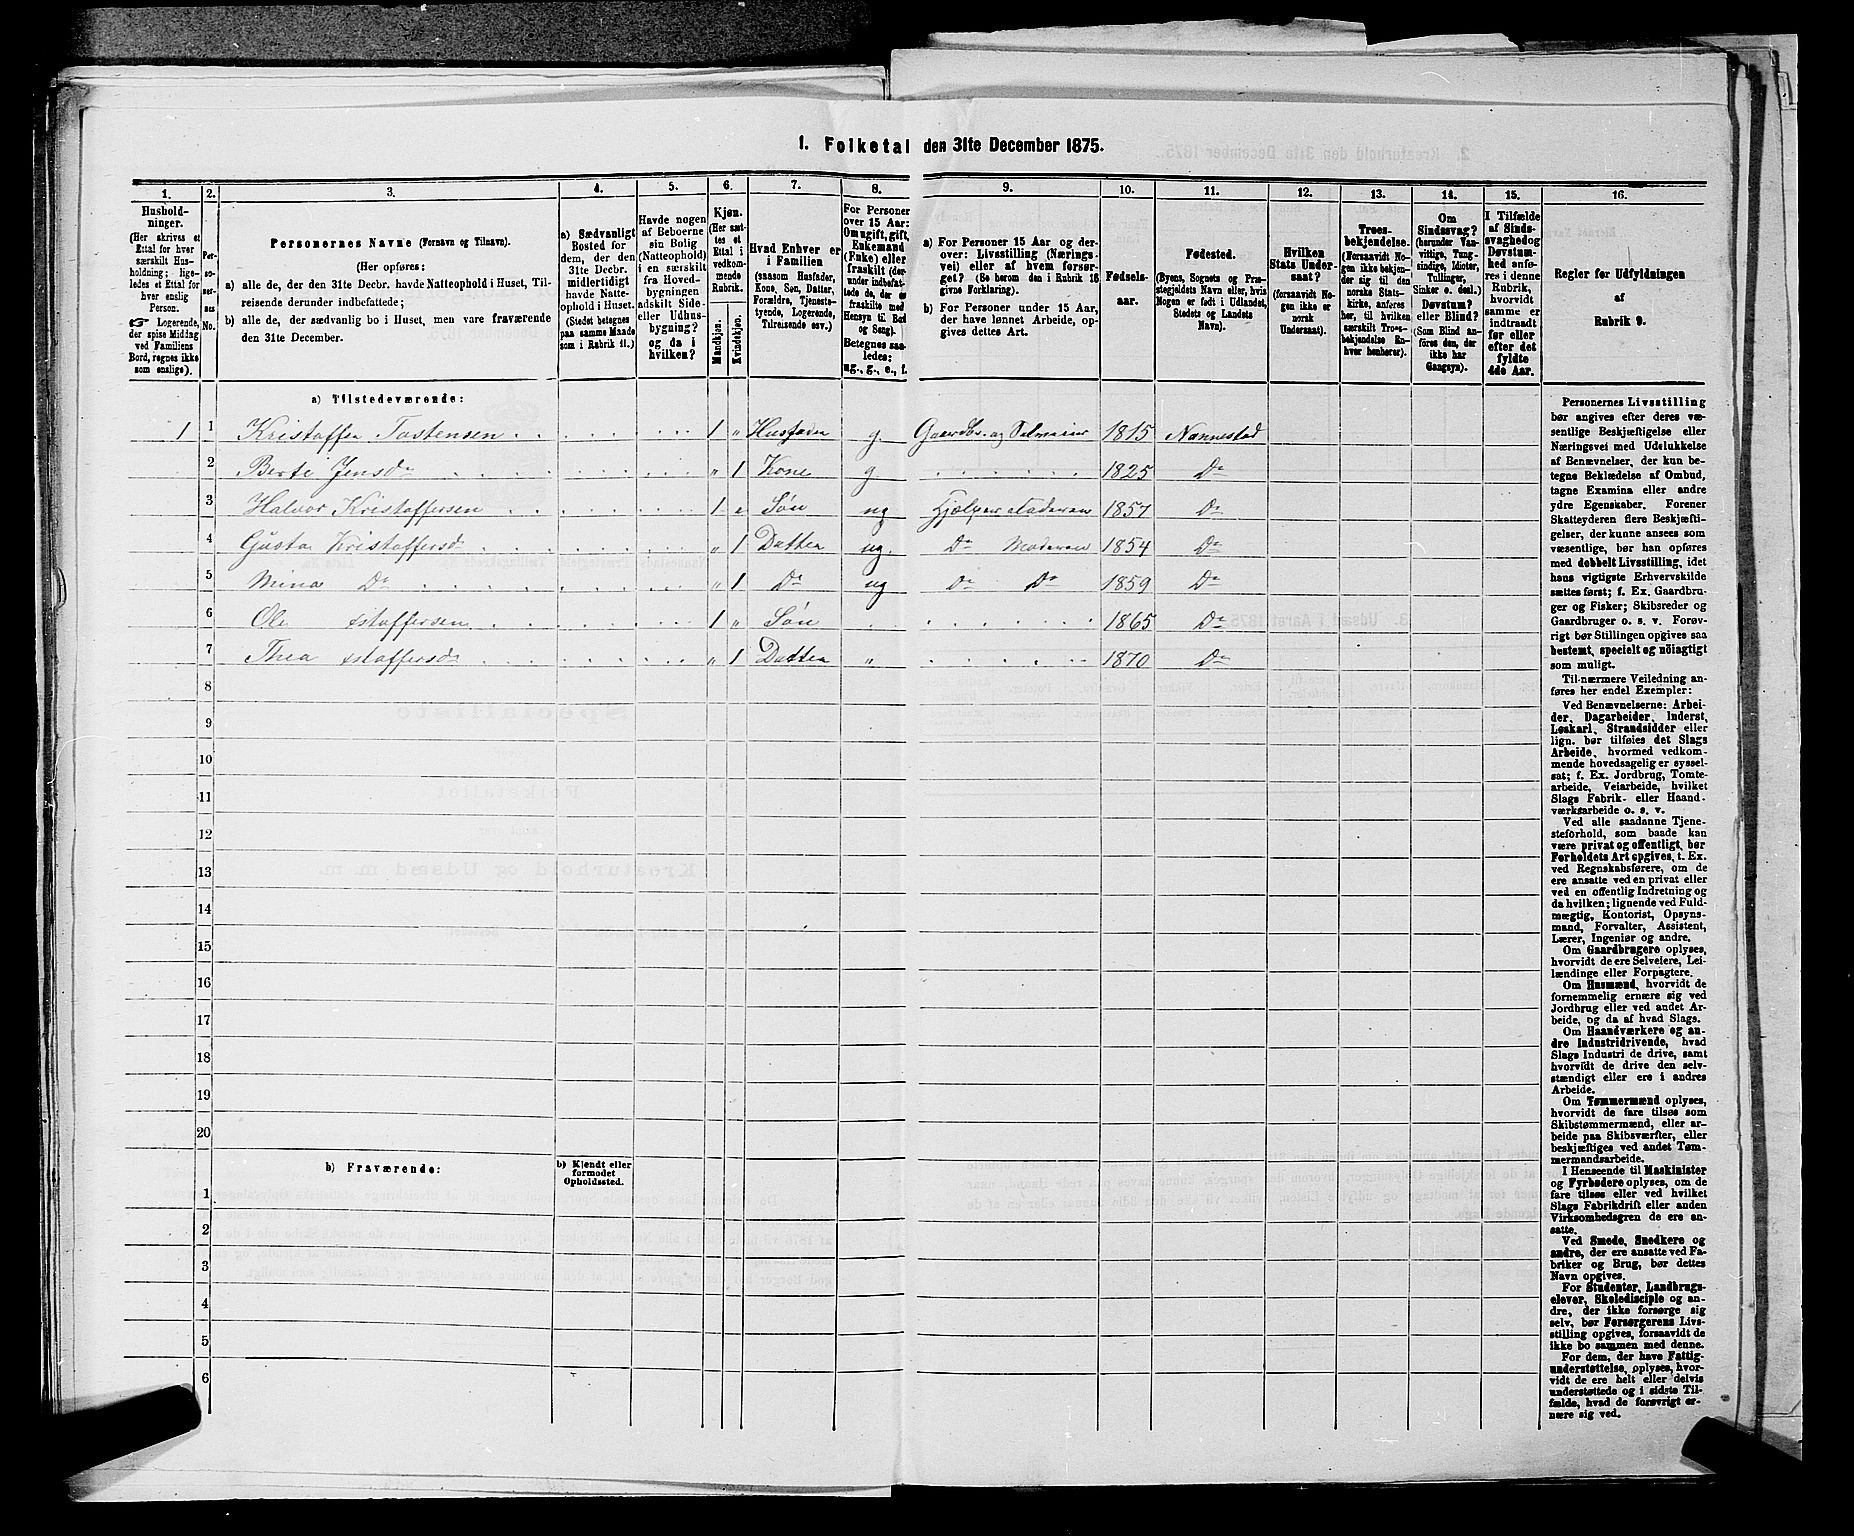 1. Folketal den 31te December 1875.
1. 2. 3. 4. 5. 6. 7. 8. 9. 10. 11. 12. 13. 14. 15. 16.
Hushold-
ninger.
(Her skrives et
Ettal for hver
særskilt Hus-
holdning; lige-
ledes et Ettal for
hver enslig
Person.
☞ Logerende,
der spise Middag
ved Familiens
Bord, regnes ikke
som enslige).
Per-
so-
ner-
nes
No.
Personernes Navne (Fornavn og Tilnavn).
(Her opføres:
a) alle de, der den 31te Decbr. havde Natteophold i Huset, Til-
reisende derunder indbefattede;
b) alle de, der sædvanlig bo i Huset, men vare fraværende
den 31te December.
a) Sædvanligt
Bosted for
dem, der den
31te Decbr.
midlertidigt
havde Natte-
ophold i Huset.
(Stedet betegnes
paa samme Maade
som i Rubrik 11.)
Havde nogen
af Beboerne
sin Bolig
(Natteophold)
i en særskilt
fra Hoved-
bygningen
adskilt Side-
eller Udhus-
bygning?
og da i
hvilken?
Kjøn.
(Her sæt-
tes et
Ettal i
vedkom-
mende
Rubrik.
Mandkjøn.
Kvindekjøn.
Hvad Enhver er
i Familien
(saasom Husfader,
Kone, Søn, Datter,
Forældre, Tjeneste-
tyende, Logerende,
Tilreisende osv.)
For Personer
over 15 Aar:
Om ugift, gift,
Enkemand
(Enke) eller
fraskilt (der-
under indbefat-
tede de, der ere
fraskilte med
Hensyn til Bord
og Seng).
Betegnes saa-
ledes:
ug., g., e., f.
a) For Personer 15 Aar og der-
over: Livsstilling (Nærings-
vei) eller af hvem forsør-
get? (Se herom den i Rubrik 16
givne Forklaring).
b) For Personer under 15 Aar,
der have lønnet Arbeide, op-
gives dettes Art.
Fødsels-
aar.
Fødested.
(Byens, Sognets og Præ-
stegjeldets Navn eller, hvis
Nogen er født i Udlandet,
Stedets og Landets
Navn).
Hvilken
Stats Under-
saat?
(forsaavidt No-
gen ikke er
norsk
Undersaat).
Troes-
bekjendelse.
(Forsaavidt No-
gen ikke bekjen-
der sig til den
norske Stats-
kirke, anføres
her, til hvilken
særskilt Troes-
bekjendelse En-
hver henhører).
Om
Sindssvag?
(herunder Van-
vittige, Tung-
sindige, Idioter,
Tullinger,
Sinker o. desl.)
Døvstum?
eller Blind?
(Som Blind an-
føres den, der
ikke har
Gangsyn).
I Tilfælde
af Sinds-
svaghed og
Døvstum-
hed anfø-
res i denne
Rubrik,
hvorvidt
samme er
indtraadt
før eller
efter det
fyldte
4de Aar.
Regler for Udfyldningen
af
Rubrik 9.
a) Tilstedeværende:
1 1 Kristoffer Tostensen 1 " Husfader g. Gaardbr. og Selveier 1815 Nannestad
2 Berte Jensdr " 1 Kone g 1825 Do
3 Halvor Kristoffersen 1 " Søn ug Hjælper Faderen 1857 Do
4 Gusta Kristoffersd " 1 Datter ug. Do Moderen 1854 Do
5 Mina Do " 1 Do ug Do Do 1859 Do
6 Ole stoffersen 1 " Søn 1865 Do
7 Thea stoffersd " 1 Datter " 1870 Do
8
9
10
11
12
13
14
15
16
17
18
19
20
b) Fraværende:
b) Kjendt eller
formodet
Opholdssted.
1
2
3
4
5
6
Personernes Livsstilling
bør angives efter deres væ-
sentlige Beskjæftigelse eller
Næringsvei med Udelukkelse
af Benævnelser, der kun be-
tegne Beklædelse af Ombud,
tagne Examina eller andre
ydre Egenskaber. Forener
Skatteyderen flere Beskjæfti-
gelser, der kunne ansees som
væsentlige, bør han opføres
med dobbelt Livsstilling, idet
hans vigtigste Erhvervskilde
sættes først; f. Ex. Gaardbru-
ger og Fisker; Skibsreder og
Gaardbruger o. s. v. Forøv-
rigt bør Stillingen opgives saa
bestemt, specielt og nöiagtigt
som muligt.
Til nærmere Veiledning an-
føres her endel Exempler:
Ved Benævnelserne: Arbei-
der, Dagarbeider, Inderst,
Løskarl, Strandsidder eller
lign. bør tilføies det Slags
Arbeide, hvormed vedkom-
mende hovedsagelig er syssel-
sat; f. Ex. Jordbrug, Tomte-
arbeide, Veiarbeide, hvilket
Slags Fabrik- eller Haand-
værksarbeide o. s. v.
Ved alle saadanne Tjene-
steforhold, som baade kan
være privat og offentligt, bør
Forholdets Art opgives, f. Ex.
ved Regnskabsførere, om de
ere ansatte ved en privat eller
ved en offentlig Indretning og
da hvilken; lignende ved Fuld-
mægtig, Kontorist, Opsyns-
mand, Forvalter, Assistent,
Lærer, Ingeniør og andre.
Om Gaardbrugere oplyses,
hvorvidt de ere Selveiere, Lei-
lændinge eller Forpagtere.
Om Husmænd, hvorvidt de
fornemmelig ernære sig ved
Jordbrug eller ved andet Ar-
beide, og da af hvad Slags.
Om Haandværkere og an-
dre Industridrivende, hvad
Slags Industri de drive, samt
hvorvidt de drive den selv-
stændigt eller ere i andres
Arbeide.
Om Tømmermænd oplyses,
hvorvidt de fare tilsøs som
Skibstømmermænd, eller ar-
beide paa Skibsværfter, eller
beskjæftiges ved andet Tøm-
mermandsarbeide.
I Henseende til Maskinister
og Fyrbødere oplyses, om de
fare tilsøs eller ved hvilket
Slags Fabrikdrift eller anden
Virksomhedsgren de ere an-
satte.
Ved Smede, Snedkere og
andre, der ere ansatte ved Fa-
briker og Brug, bør dettes
Navn opgives.
For Studenter, Landbrugs-
elever, Skoledisciple og an-
dre, der ikke forsørge sig
selv, bør Forsørgerens Livs-
stilling opgives, forsaavidt de
ikke bo sammen med denne.
For dem, der have Fattig-
understøttelse, oplyses, hvor-
vidt de ere helt eller delvis
understøttede og i sidste Til-
fælde, hvad de forøvrigt er-
nære sig ved.